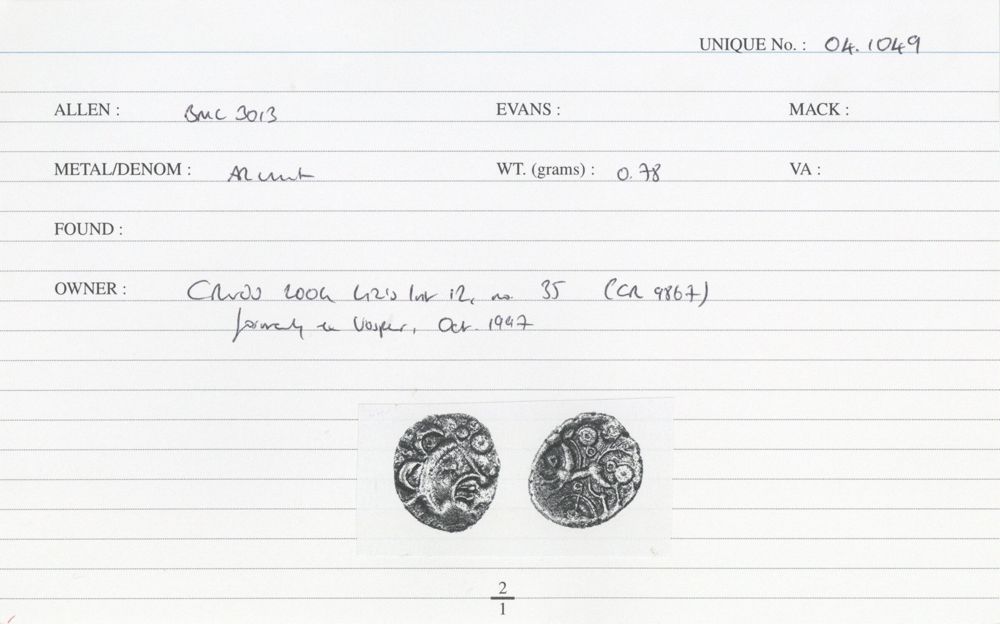 UNIQUE No. : 04.1049
ALLEN : BMC 3013 EVANS : MACK :
METAL/DENOM : AR unit WT. (grams) : 0.78 VA :
FOUND :
OWNER : 2004 list 12, no. 35 (CR 9867)
formerly Vosper, Oct. 1997
2
1